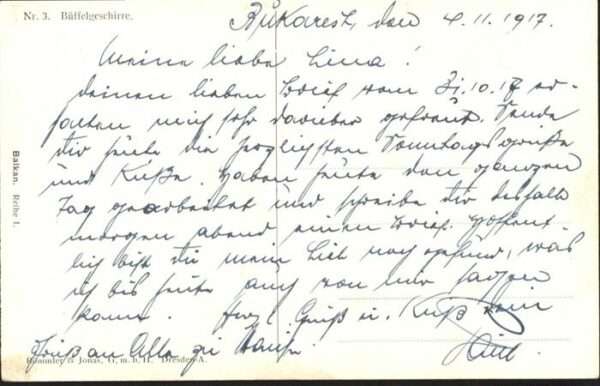 Nr. 3. Büffelgeschirre.
Bukarest, den 4.11.1917.
Meine liebe Lina!
Deinen lieben Brief vom 31.10.17 er-
halten mich sehr darüber gefreut. Sende
Dir heute die herzlichsten Sonntagsgrüße
und Küße. Haben heute den ganzen
Tag gearbeitet und schreibe Dir deshalb
morgen abend einen Brief. Hoffent-
lich bist du mein Lieb noch gesund, was
ich bis heute auch von mir sagen
kann. Herzl. Gruß u. Kuß Dein
Gruß an Alle zu Hause.
Balkan. Reihe I.
Römmler & Jonas, G. m. b. H. Dresden-A.